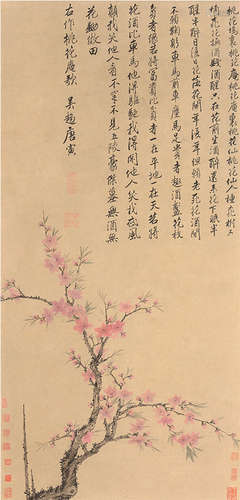 桃花塢裏桃花庵桃花庵裏桃花仙桃花仙人種桃樹又
摘桃花換酒錢酒醒只在花前坐酒醉還來花下眠半
醒半醉日復日花落花開年復年但願老死花酒間
不願鞠躬車馬前車塵馬足貴者趣酒盞花枝
貧者緣若將富貴比貧者一在平地一在天若將
花酒比車馬他得驅馳我得閒他人笑我忒風
顛我笑他人看不穿不見五陵豪傑墓無酒無
花鋤做田
右作桃花庵歌 吳趨唐寅